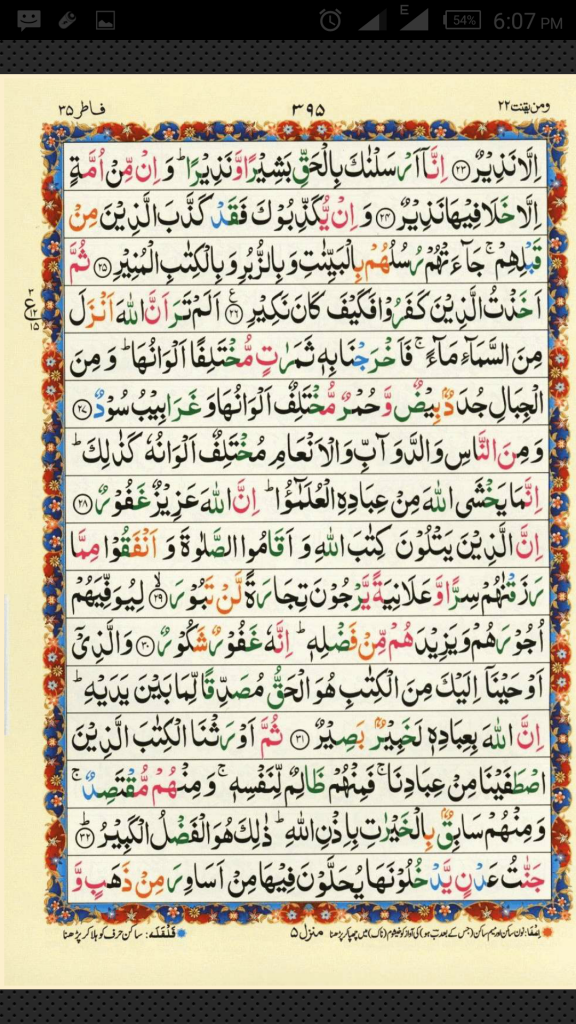 E
54%
6:07 PM
ومن یقنت ۲۲
۳۹۵
فاطر ۳۵
اِلَّا نَذِیْرٌ ﴿۲۳﴾ اِنَّاۤ اَرْسَلْنٰكَ بِالْحَقِّ بَشِیْرًا وَّنَذِیْرًا ؕ وَ اِنْ مِّنْ اُمَّةٍ
اِلَّا خَلَا فِیْهَا نَذِیْرٌ ﴿۲۴﴾ وَ اِنْ یُّكَذِّبُوْكَ فَقَدْ كَذَّبَ الَّذِیْنَ مِنْ
قَبْلِهِمْ ۚ جَآءَتْهُمْ رُسُلُهُمْ بِالْبَیِّنٰتِ وَ بِالزُّبُرِ وَ بِالْكِتٰبِ الْمُنِیْرِ ﴿۲۵﴾ ثُمَّ
اَخَذْتُ الَّذِیْنَ كَفَرُوْا فَكَیْفَ كَانَ نَكِیْرِ ﴿۲۶﴾ ع اَلَمْ تَرَ اَنَّ اللّٰهَ اَنْزَلَ
مِنَ السَّمَآءِ مَآءً ۚ فَاَخْرَجْنَا بِهٖ ثَمَرٰتٍ مُّخْتَلِفًا اَلْوَانُهَا ؕ وَ مِنَ
الْجِبَالِ جُدَدٌۢ بِیْضٌ وَّ حُمْرٌ مُّخْتَلِفٌ اَلْوَانُهَا وَ غَرَابِیْبُ سُوْدٌ ﴿۲۷﴾
وَ مِنَ النَّاسِ وَ الدَّوَآبِّ وَ الْاَنْعَامِ مُخْتَلِفٌ اَلْوَانُهٗ كَذٰلِكَ ؕ
اِنَّمَا یَخْشَی اللّٰهَ مِنْ عِبَادِهِ الْعُلَمٰٓؤُا ؕ اِنَّ اللّٰهَ عَزِیْزٌ غَفُوْرٌ ﴿۲۸﴾
اِنَّ الَّذِیْنَ یَتْلُوْنَ كِتٰبَ اللّٰهِ وَ اَقَامُوا الصَّلٰوةَ وَ اَنْفَقُوْا مِمَّا
رَزَقْنٰهُمْ سِرًّا وَّ عَلَانِیَةً یَّرْجُوْنَ تِجَارَةً لَّنْ تَبُوْرَ ﴿۲۹﴾ ۙ لِیُوَفِّیَهُمْ
اُجُوْرَهُمْ وَ یَزِیْدَهُمْ مِّنْ فَضْلِهٖ ؕ اِنَّهٗ غَفُوْرٌ شَكُوْرٌ ﴿۳۰﴾ وَ الَّذِیْۤ
اَوْحَیْنَاۤ اِلَیْكَ مِنَ الْكِتٰبِ هُوَ الْحَقُّ مُصَدِّقًا لِّمَا بَیْنَ یَدَیْهِ ؕ
اِنَّ اللّٰهَ بِعِبَادِهٖ لَخَبِیْرٌۢ بَصِیْرٌ ﴿۳۱﴾ ثُمَّ اَوْرَثْنَا الْكِتٰبَ الَّذِیْنَ
اصْطَفَیْنَا مِنْ عِبَادِنَا ۚ فَمِنْهُمْ ظَالِمٌ لِّنَفْسِهٖ ۚ وَ مِنْهُمْ مُّقْتَصِدٌ ۚ
وَ مِنْهُمْ سَابِقٌۢ بِالْخَیْرٰتِ بِاِذْنِ اللّٰهِ ؕ ذٰلِكَ هُوَ الْفَضْلُ الْكَبِیْرُ ﴿۳۲﴾ ؕ
جَنّٰتُ عَدْنٍ یَّدْخُلُوْنَهَا یُحَلَّوْنَ فِیْهَا مِنْ اَسَاوِرَ مِنْ ذَهَبٍ وَّ
منزل ۵
قلقلہ: ساکن حرف کو ہلا کر پڑھنا